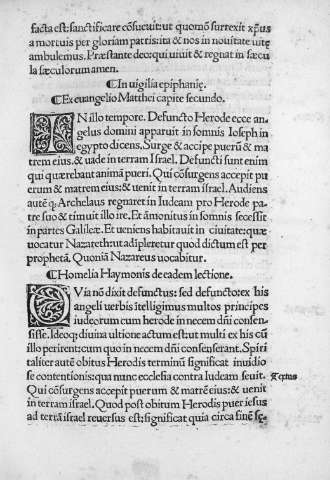 facta est: sanctificare cõsueuit: ut quomõ surrexit xp̃us
a mortuis per gloriam patris: ita & nos in nouitate uitę
ambulemus. Præstante deo: qui uiuit & regnat in sæcu
la sæculorum amen.
¶In uigilia epiphanię.
¶Ex euangelio Matthei capite secundo.
IN illo tempore. Defuncto Herode ecce an
gelus domini apparuit in somnis Ioseph in
egypto dicens. Surge & accipe puerũ & ma
trem eius, & uade in terram Israel. Defuncti sunt enim
qui quærebant animã pueri. Qui cõsurgens accepit pu
erum & matrem eius: & uenit in terram israel. Audiens
autẽ q; Archelaus regnaret in Iudeam pro Herode pa
tre suo & timuit illo ire. Et ãmonitus in somnis secessit
in partes Galileæ. Et ueniens habitauit in ciuitate: quæ
uocatur Nazareth: ut adĩpleretur quod dictum est per
prophetã. Quoniã Nazareus uocabitur.
¶Homelia Haymonis de eadem lectione.
QVia nõ dixit defunctus: sed defuncto: ex his
angeli uerbis ĩtelligimus multos principes
iudeorum cum herode in necem dñi consen-
sisse. Ideoq; diuina ultione actum est: ut multi ex his cũ
illo perirent: cum quo in necem dñi consenserant. Spiri
taliter autẽ obitus Herodis terminũ significat inuidio
sæ contentionis: qua nunc ecclesia contra Iudeam seuit.
Qui cõsurgens accepit puerum & matrẽ eius: & uenit
in terram israel. Quod post obitum Herodis puer iesus
ad terrã israel reuersus est: significat quia circa finẽ sę-
Textus